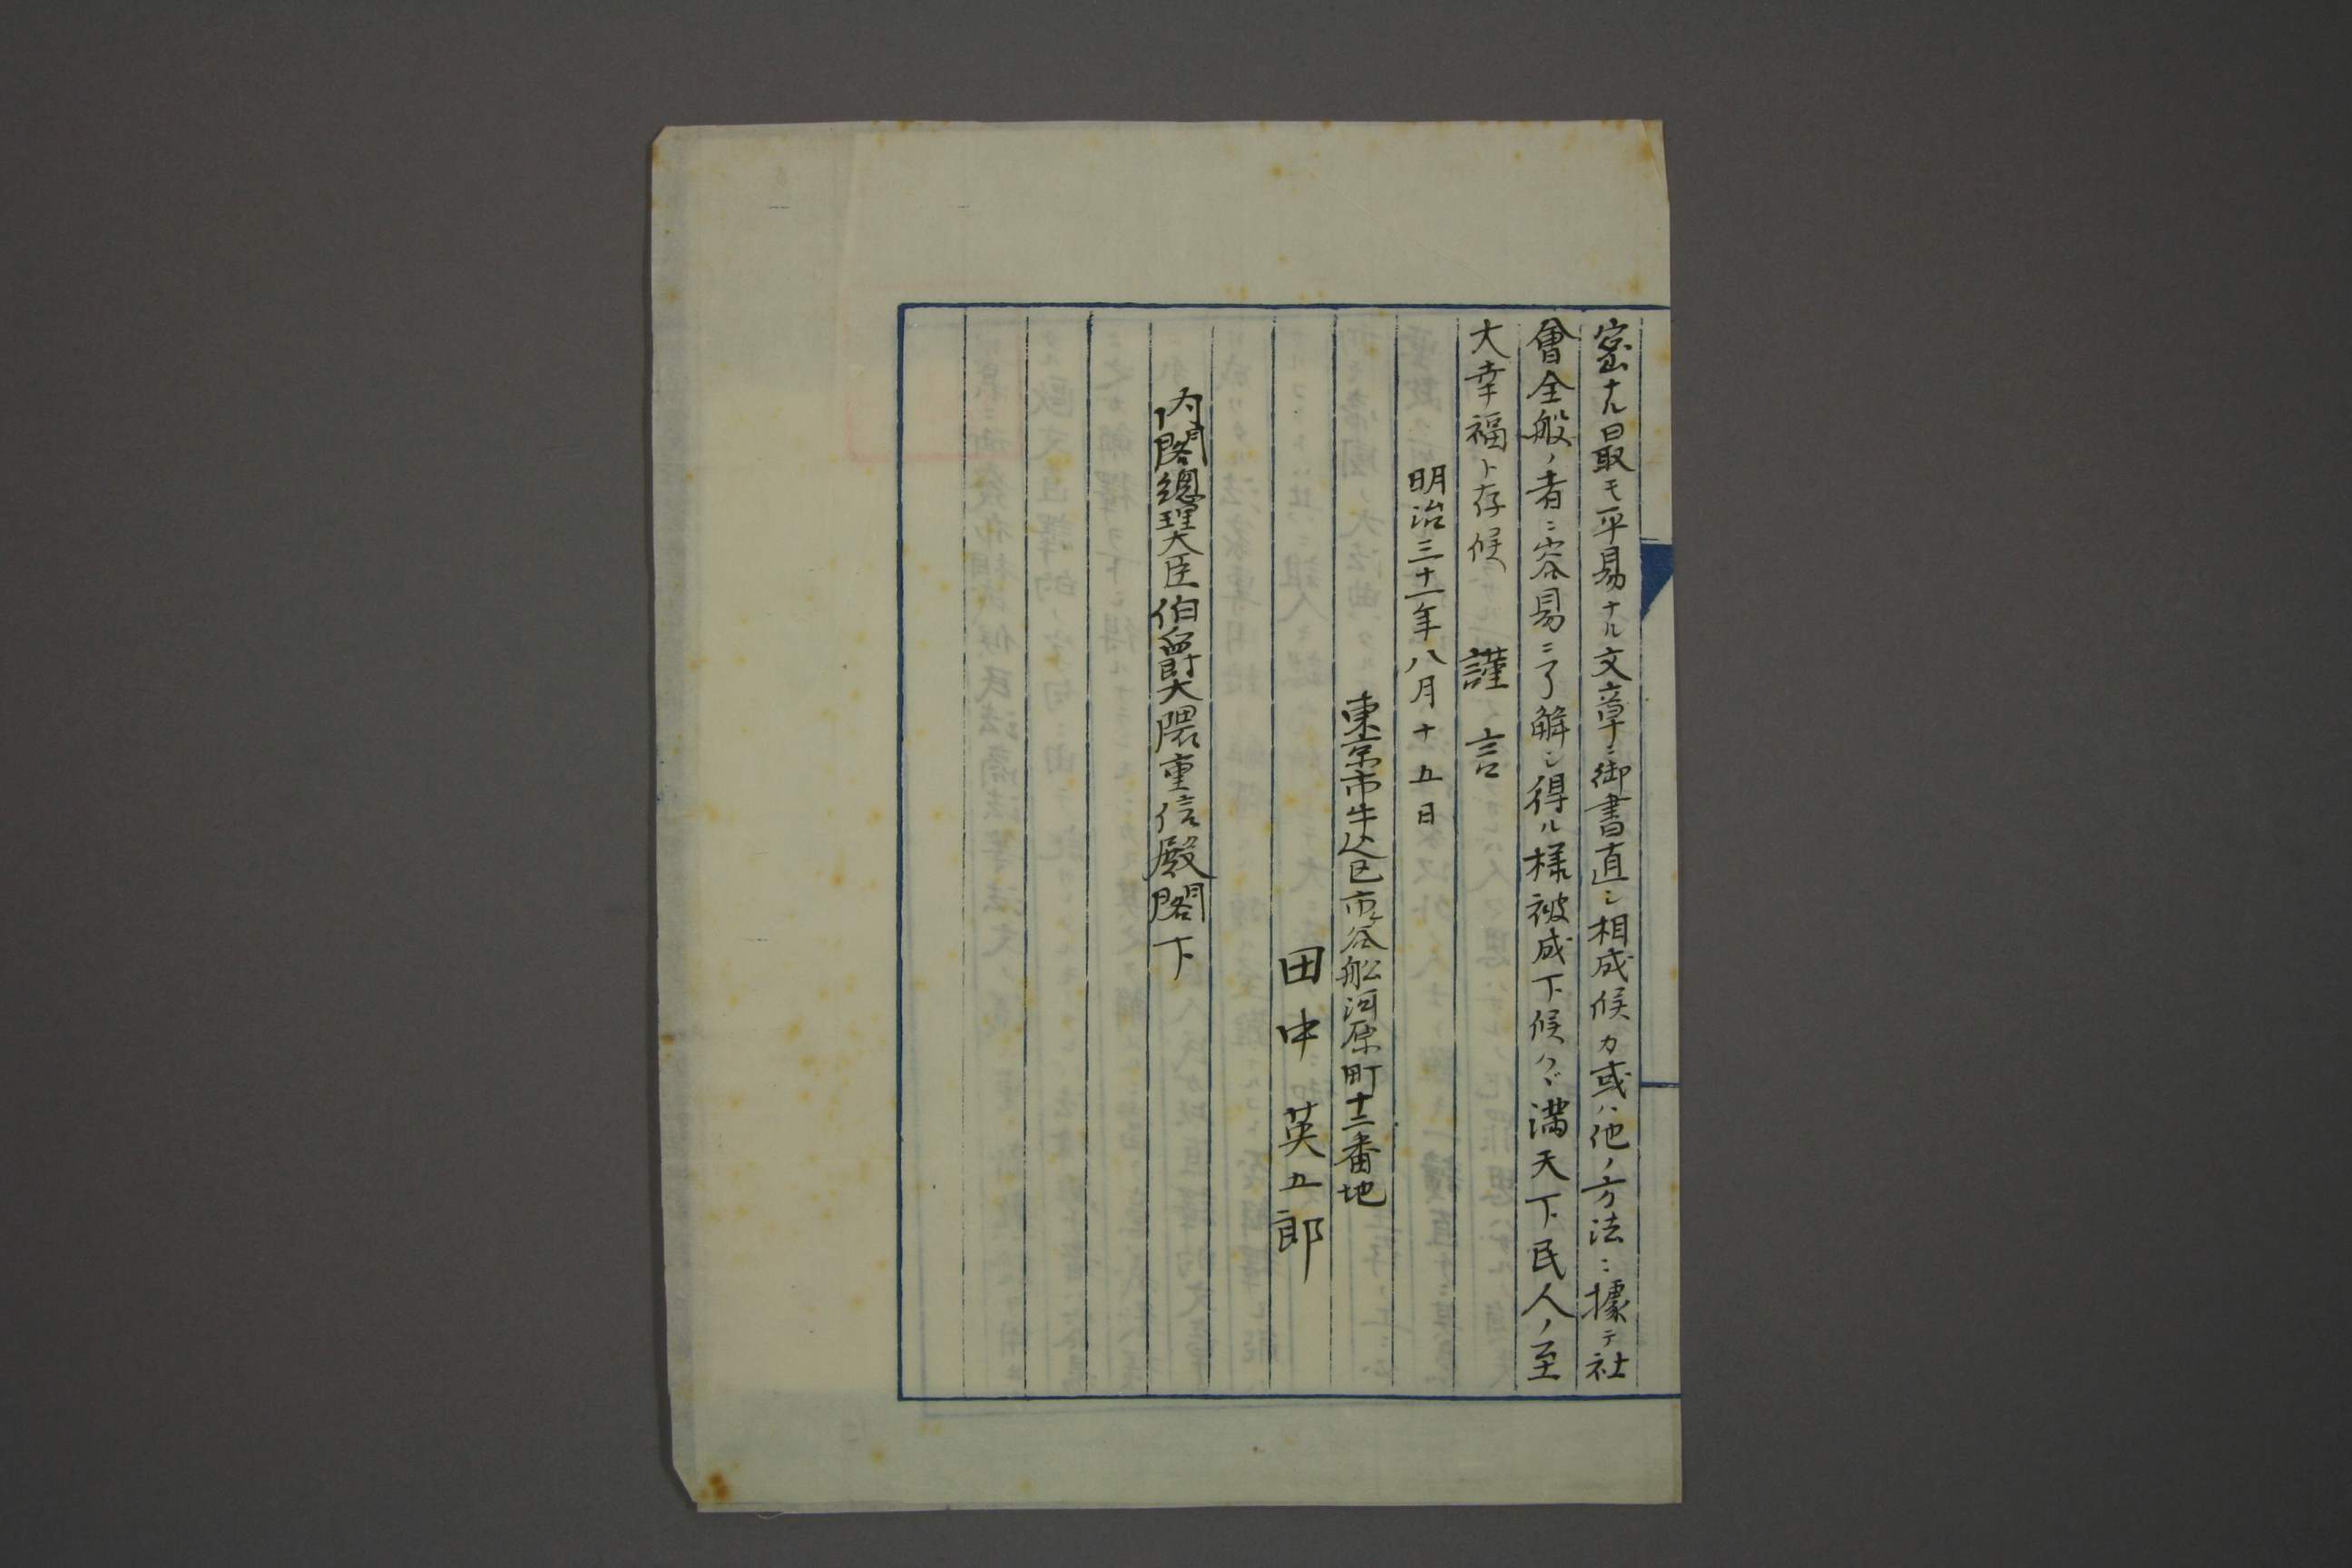 密ナル日最モ平易ナル文章ニ御書直シ相成候カ或ハ他ノ方法ニ據テ社
會全般ノ者ニ容易ニ了解シ得ル様被成下候ハヾ満天下民人ノ至
大幸福ト存候 謹言
明治三十一年八月十五日
東京市牛込区市ヶ谷船河原町十二番地
田中英五郎
内閣總理大臣伯爵大隈重信殿閣下